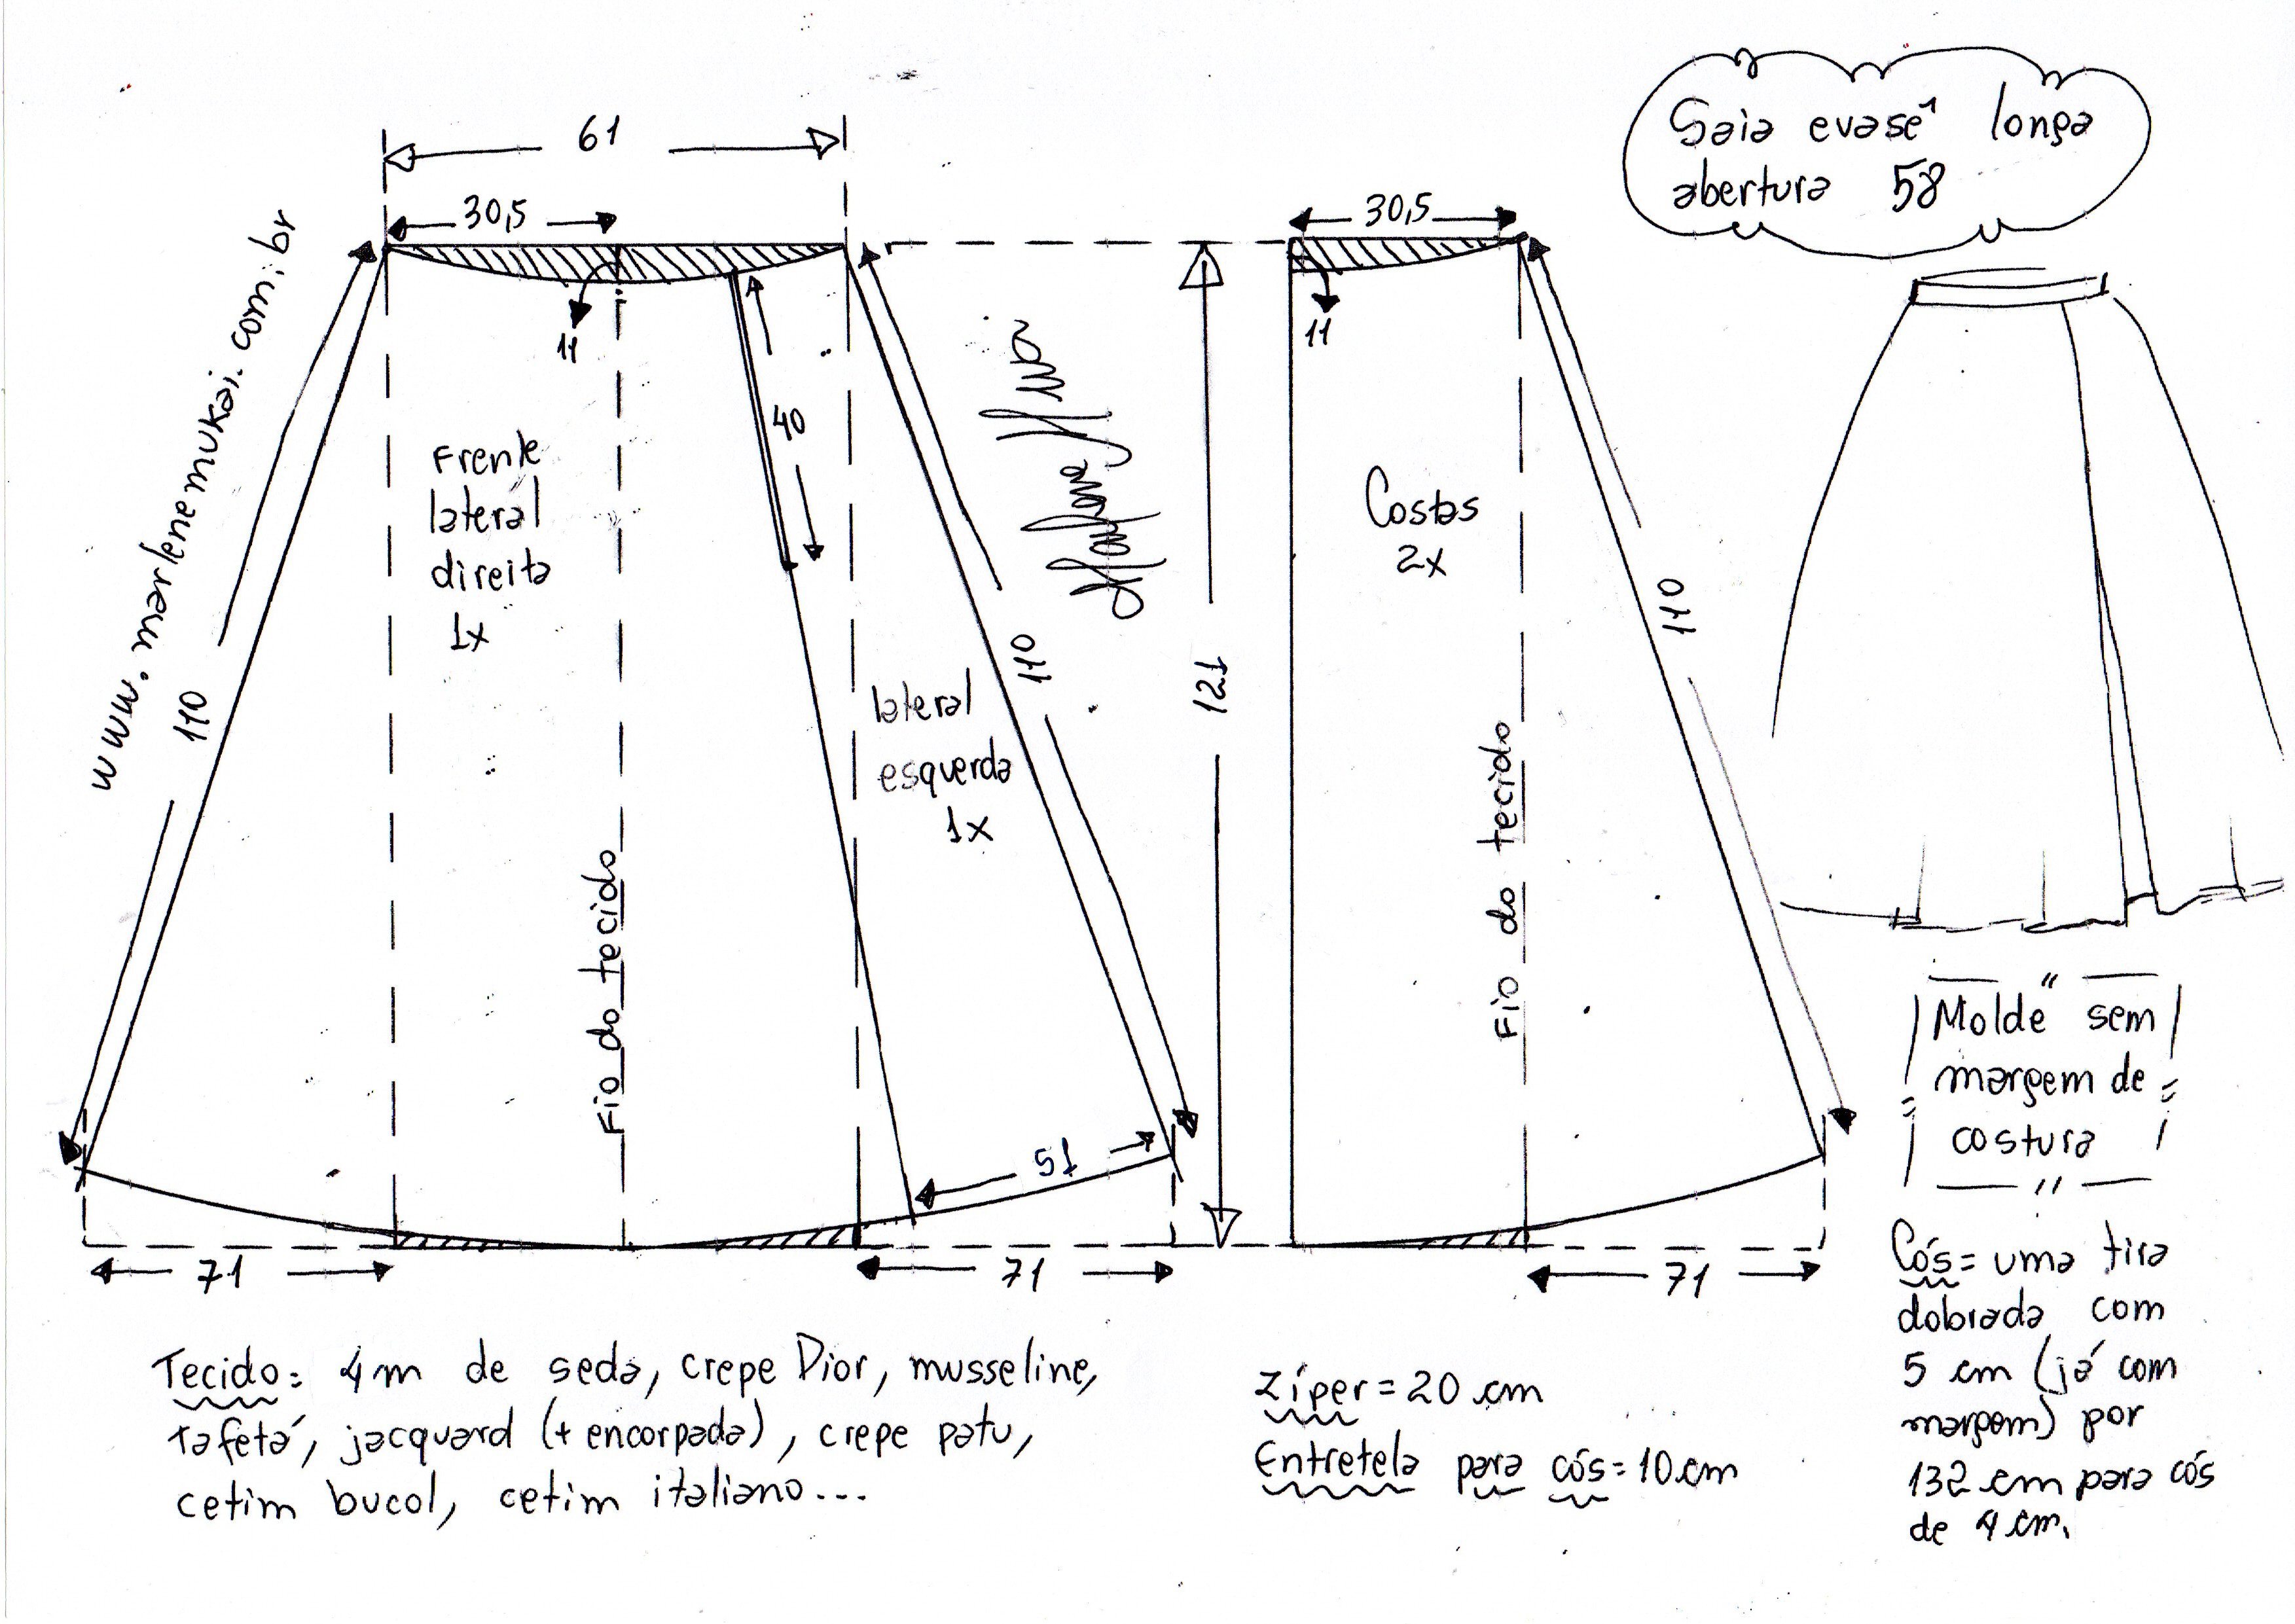 Saia evasê longa
abertura 58
61
30,5
30,5
11
11
www.marlenemukai.com.br
Frente
lateral
direita
1x
40
110
110
110
121
lateral
esquerda
1x
Costas
2x
Fio do tecido
Fio do tecido
51
71
71
71
Molde sem
margem de
costura
Tecido: 4m de seda, crepe Dior, musseline,
tafetá, jacquard (+ encorpada), crepe patu,
cetim bucol, cetim italiano...
Zíper = 20 cm
Entretela para cós = 10 cm
Cós = uma tira
dobrada com
5 cm (já com
margem) por
132 cm para cós
de 4 cm.